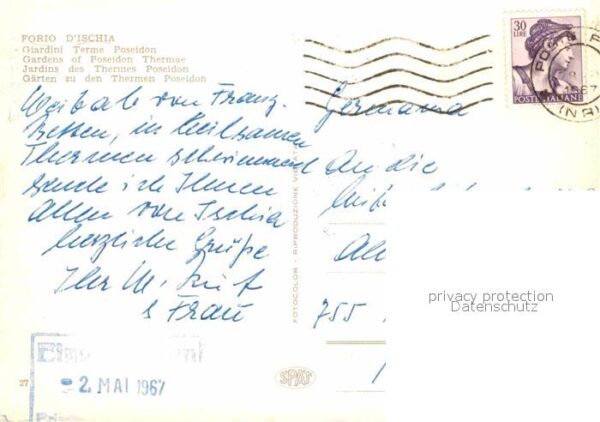 FORIO D'ISCHIA
Giardini Terme Poseidon
Gardens of Poseidon Thermue
Jardins des Thermes Poseidon
Gärten zu den Thermen Poseidon
von Franz.
Betten, in heilsamen
Thermen schwimmend
sende ich Ihnen
Allen von Ischia
herzliche Grüße
Ihr
& Frau
30
LIRE
POSTE ITALIANE
POSTE
1967
Germania
An die
755
FOTOCOLOR - RIPRODUZIONE VIETATA
privacy protection
Datenschutz
2. MAI 1967
27
SPAT